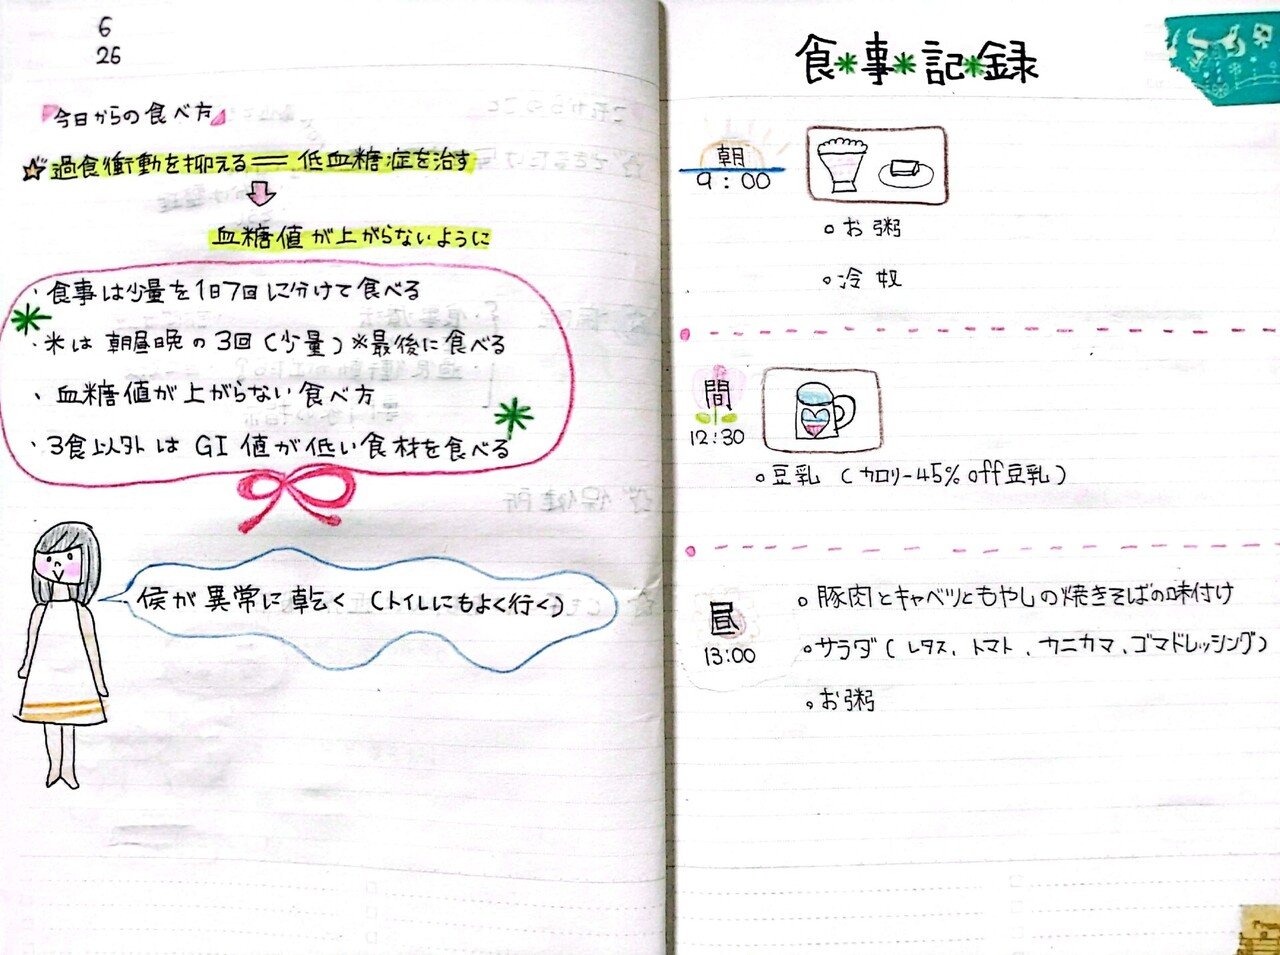 6
26
今日からの食べ方
過食衝動を抑える＝低血糖症を治す
血糖値が上がらないように
・食事は少量を1日7回に分けて食べる
・米は朝昼晩の3回(少量)※最後に食べる
・血糖値が上がらない食べ方
・3食以外はGI値が低い食材を食べる
侯が異常に乾く(トイレにもよく行く)
食*事*記*録
朝
9:00
お粥
冷奴
間
12:30
豆乳(カロリー45%off豆乳)
昼
13:00
豚肉とキャベツともやしの焼きそばの味付け
サラダ(レタス、トマト、カニカマ、ゴマドレッシング)
お粥